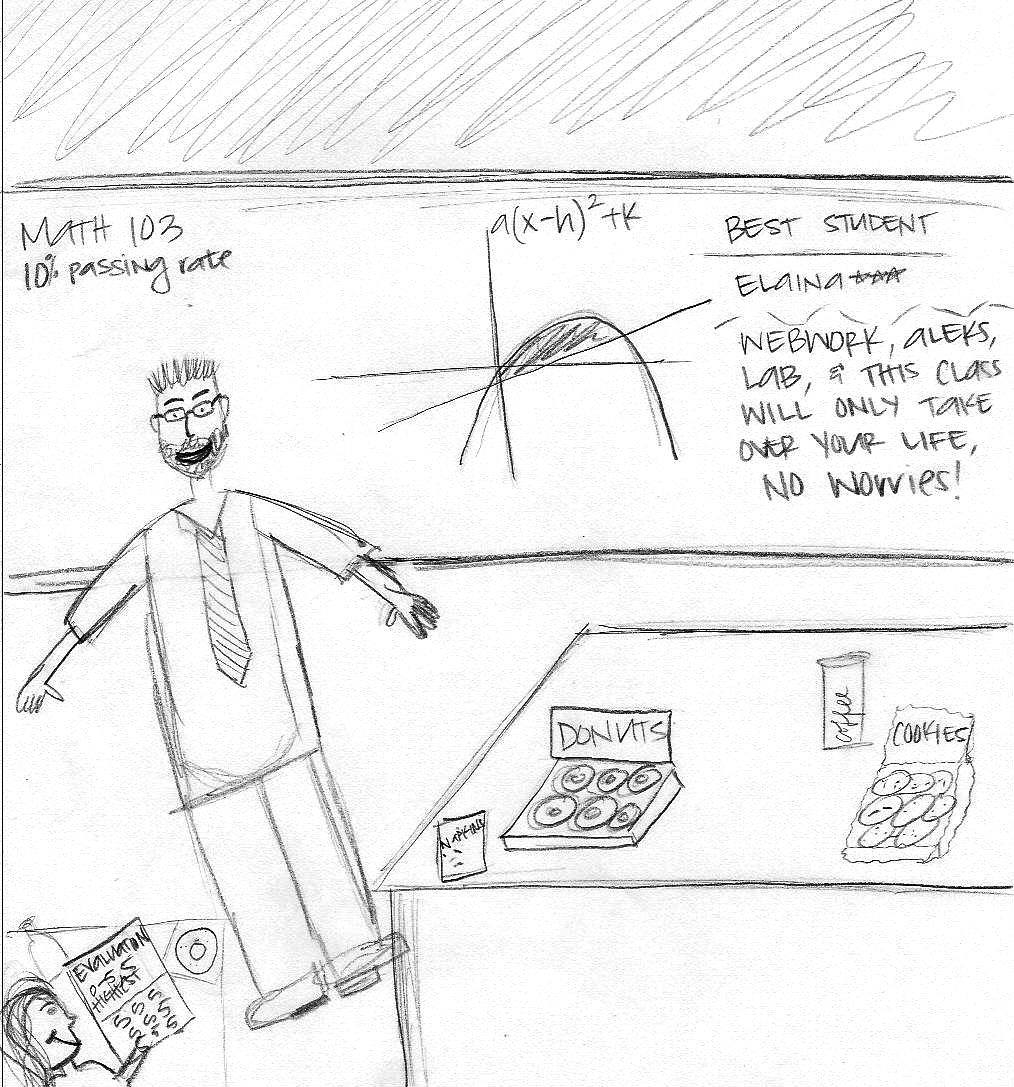 MATH 103
10% passing rate
a(x-h)²+k
BEST STUDENT
ELAINA ★★★
WEBWORK, ALEKS,
LAB, & THIS CLASS
WILL ONLY TAKE
OVER YOUR LIFE,
NO WORRIES!
DONUTS
coffee
COOKIES
NAPKINS
EVALUATION
0-5 5
HIGHEST
5 5 5
5 5 5
5 5 5